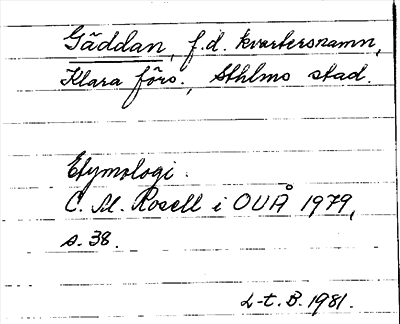 Gäddan, f.d. kvartersnamn,
Klara förs., Sthlms stad.
Etymologi.
C. M. Rosell i OUÅ 1979,
s. 38.
L-t. B. 1981.